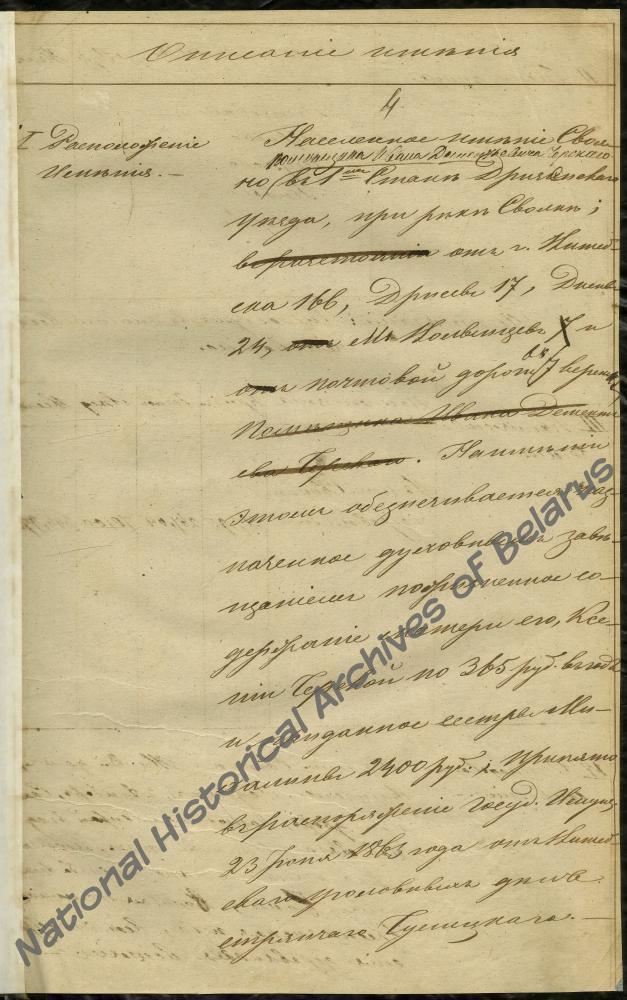 Описаніе имѣнія
4.
I Расположеніе
Имѣнія. —
Населенное имѣніе Своль-
помѣщика Ивана Дементьевича Черскаго
но въ 1мъ Станѣ Дриссенскаго
уѣзда, при рѣкѣ Сволнѣ;
въ разстояніи отъ г. Витеб-
ска 166, Дриссы 17, Диснѣ
24, отъ М. Волынцевъ 7 и
отъ почтовой дороги въ 7 верстахъ
Помѣщика Ивана Дементь-
ева Черскаго. На имѣніи
этомъ обезпечивается наз-
наченное духовнымъ завѣ-
щаніемъ пожизненное со-
держаніе матери его, Ксе-
ніи Черской по 365 руб. въ годъ
и невыданное сестрѣ Ми-
халинѣ 2400 руб.; принято
въ распоряженіе Госуд. Имущ.
23 Іюня 1863 года отъ Витеб-
скаго уголовныхъ дѣлъ
стряпчаго —
National Historical Archives of Belarus